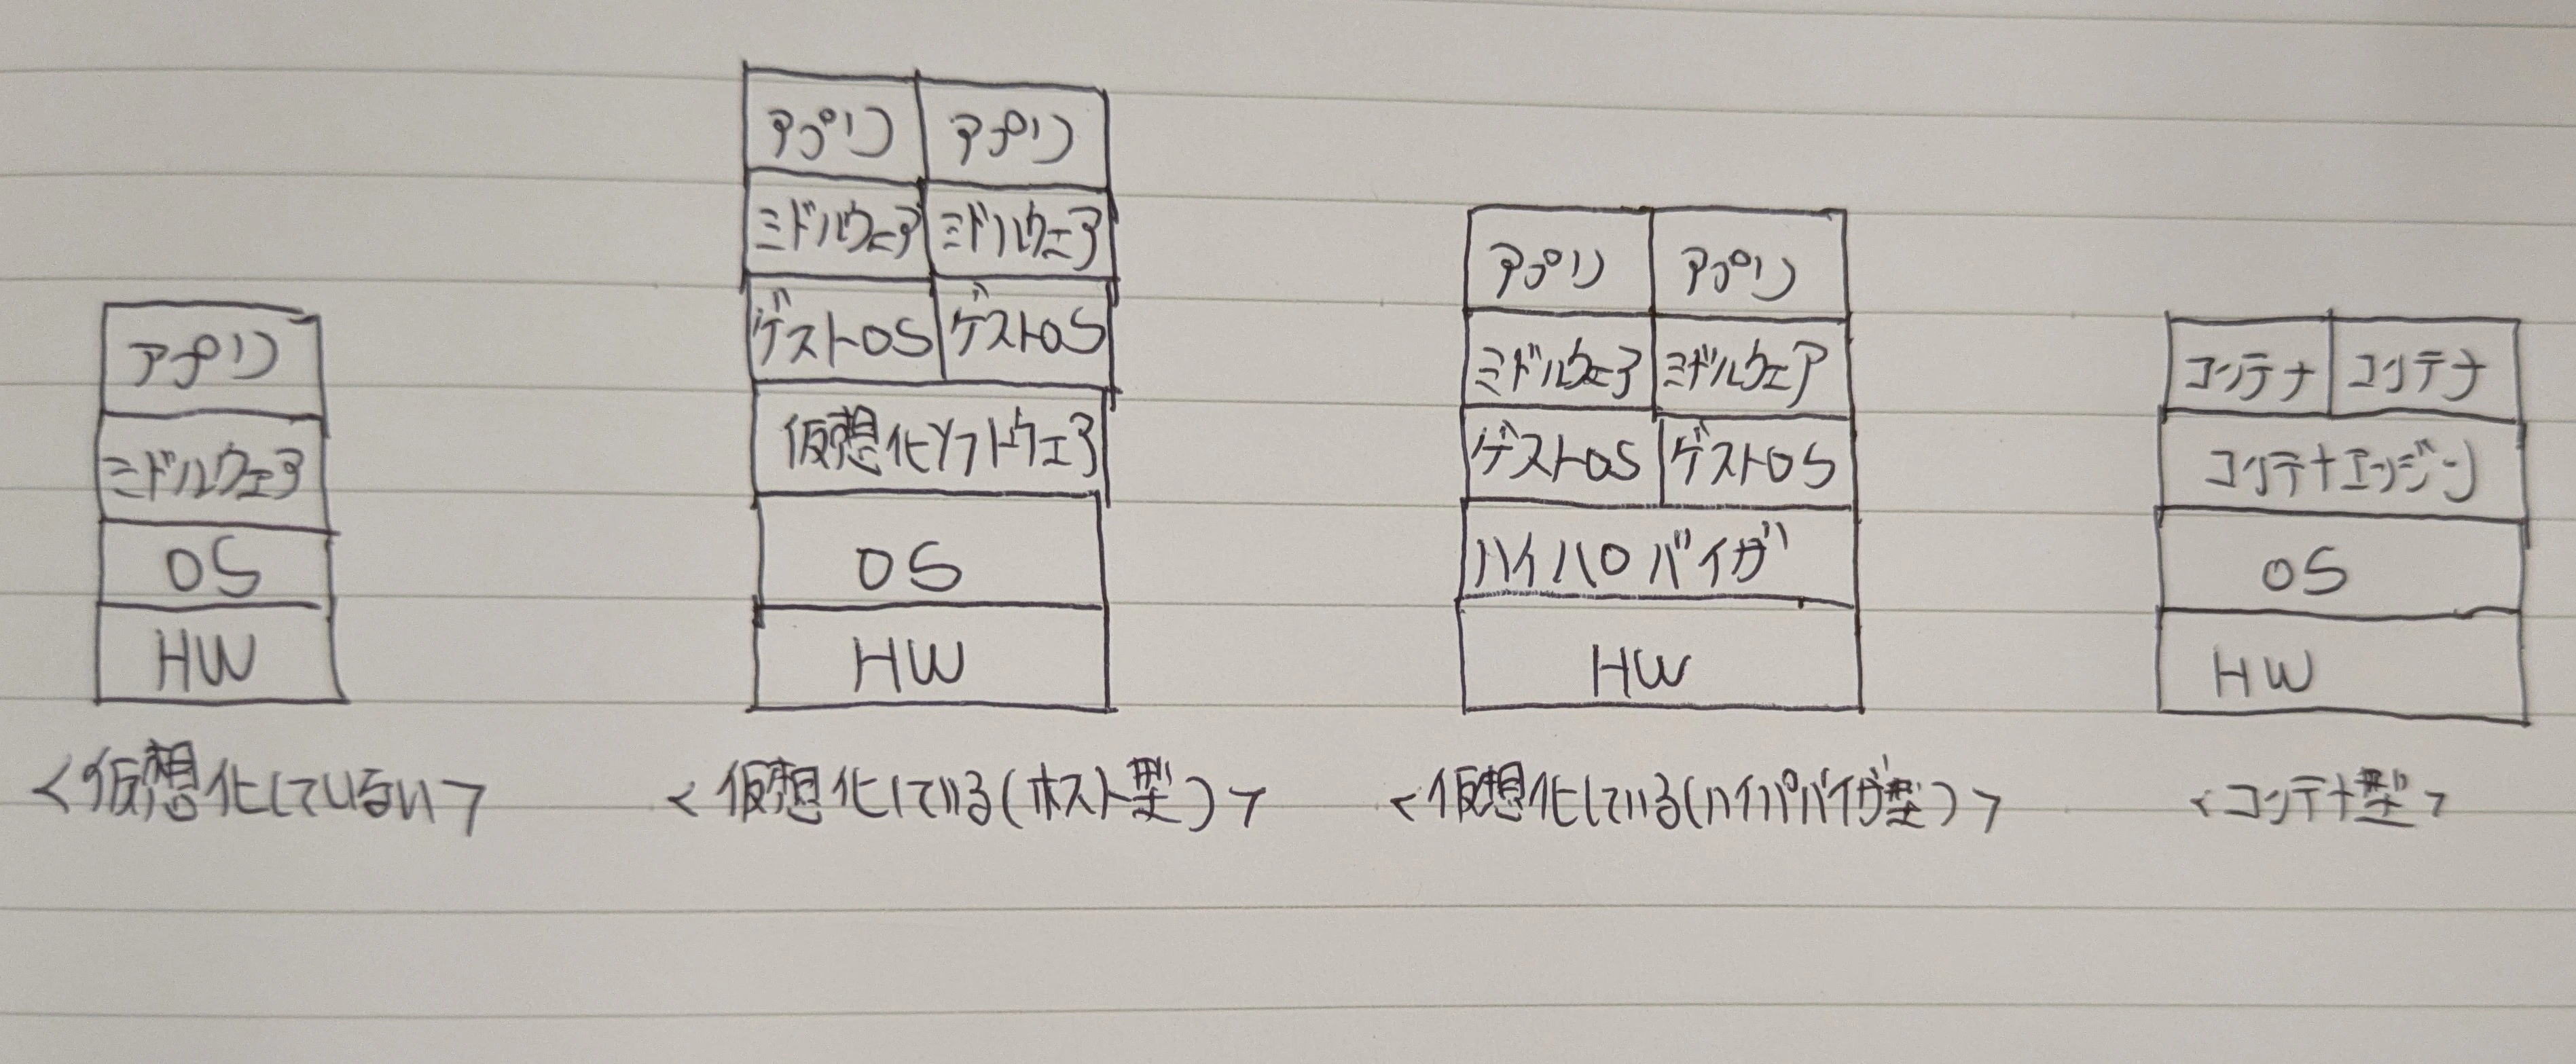 アプリ
ミドルウェア
OS
HW
<仮想化していない>
アプリ アプリ
ミドルウェア ミドルウェア
ゲストOS ゲストOS
仮想化ソフトウェア
OS
HW
<仮想化している(ホスト型)>
アプリ アプリ
ミドルウェア ミドルウェア
ゲストOS ゲストOS
ハイパロバイザ
HW
<仮想化している(ハイパバイザ型)>
コンテナ コンテナ
コンテナエンジン
OS
HW
<コンテナ型>